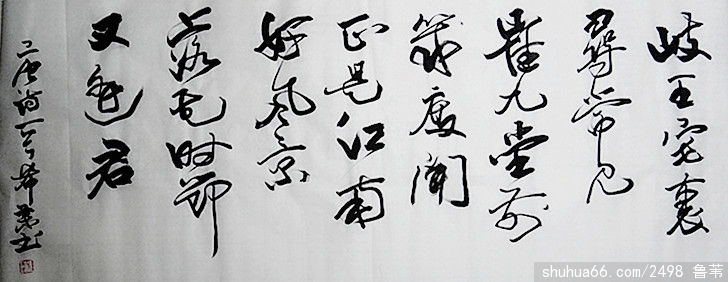 岐王宅裏
尋常见
崔九堂前
幾度闻
正是江南
好风景
落花时節
又逢君
唐诗一首 书
shuhua66.com/2498 鲁苇